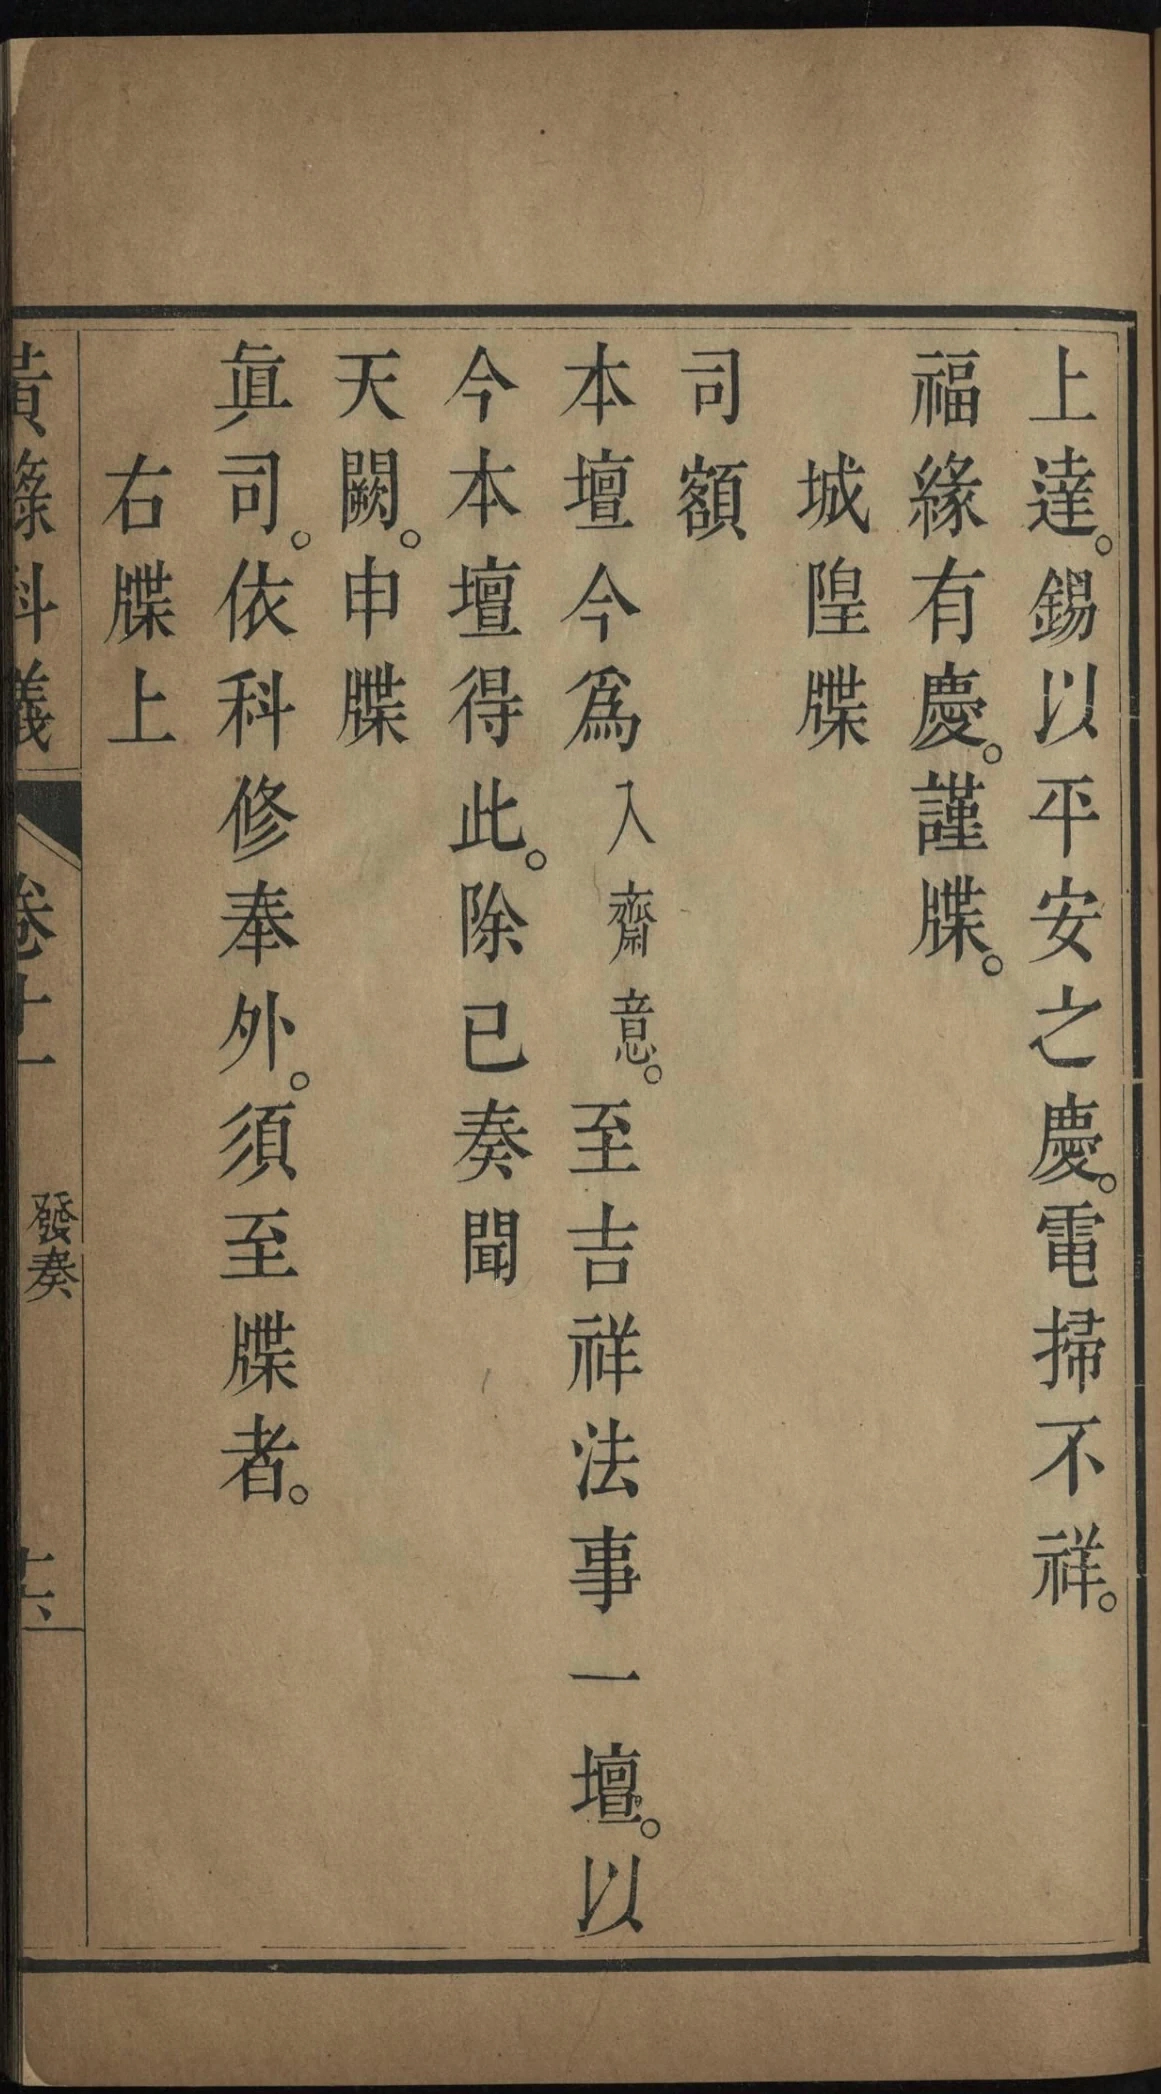 上達。錫以平安之慶。電掃不祥。
福緣有慶。謹牒。
城隍牒
司額
本壇今爲入齋意。至吉祥法事一壇。以
今本壇得此。除已奏聞
天闕。申牒
眞司。依科修奉外。須至牒者。
右牒上
黃籙科儀 卷十一 發奏 十六